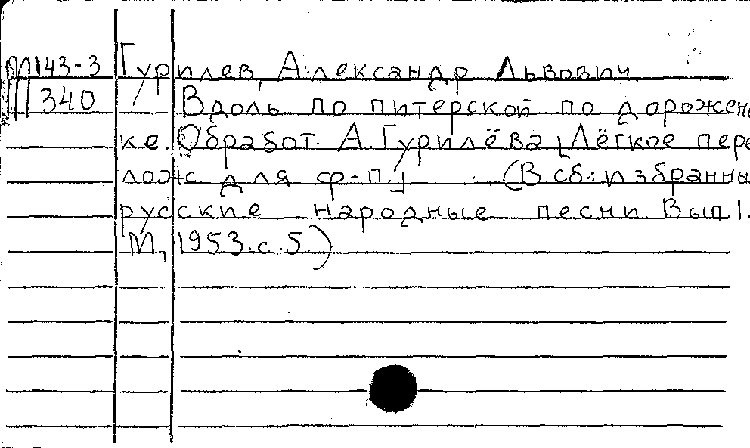 М143-3 Гурилев, Александр Львович
340 Вдоль по питерской по дорожень
ке. Обработ. А. Гурилёва [Лёгкое пере
лож для ф-п.] (В сб: Избранны
русские народные песни. Вып 1.
М, 1953. с. 5.)